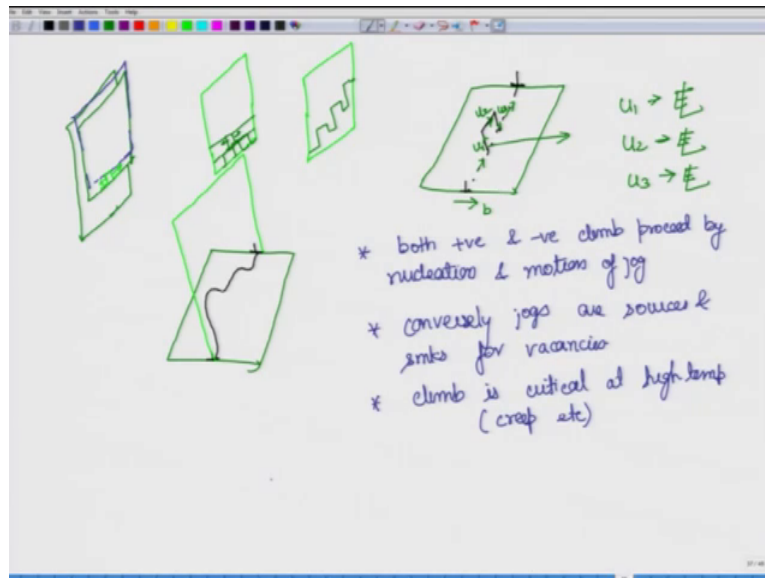 File Edit View Insert Actions Tools Help
u₁ →
u₂ →
u₃ →
u₂
u₁
→ b
* both +ve & -ve climb proceed by
nucleation & motion of jog
* conversely jogs are sources &
sinks for vacancies
* climb is critical at high temp
(creep etc)